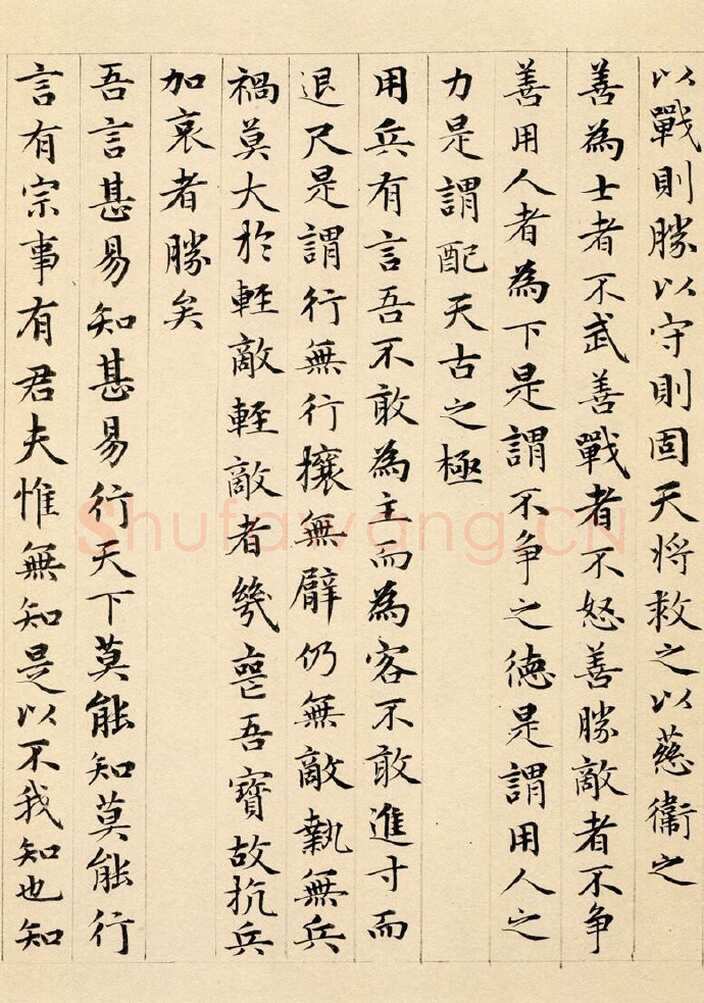 以戰則勝以守則固天将救之以慈衞之
善為士者不武善戰者不怒善勝敵者不争
善用人者為下是謂不争之德是謂用人之
力是謂配天古之極
用兵有言吾不敢為主而為客不敢進寸而
退尺是謂行無行攘無臂仍無敵執無兵
禍莫大於輕敵輕敵者幾喪吾寶故抗兵
加哀者勝矣
吾言甚易知甚易行天下莫能知莫能行
言有宗事有君夫惟無知是以不我知也知
Shufawang.CN